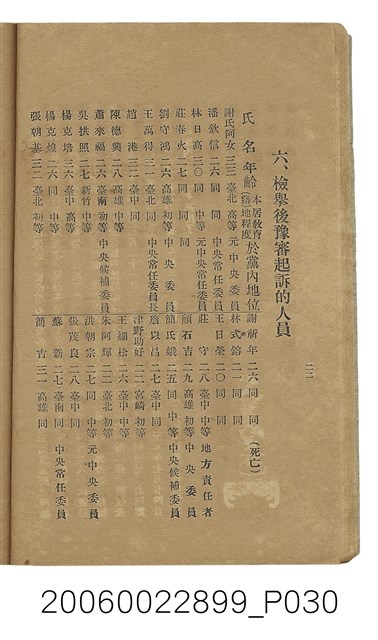 六、檢舉後豫審起訴的人員
氏名 年齡 本居(籍)地 教育程度 於黨內地位
謝氏阿女 三三 臺北 高等 元中央委員
潘欽信 二六 同 同 中央常任委員
林日高 三〇 同 中等 元中央常任委員
莊春火 二七 同 同 同
劉守鴻 二六 高雄 同 中央委員
王萬得 三一 臺北 同 中央常任委員長
趙港 三二 臺中 同
陳德興 二八 高雄 中等
蕭來福 二六 臺南 初等 中央候補委員
吳拱照 二七 新竹 中等
楊克培 三六 臺中 高等
楊克煌 二六 同 中等
張朝基 三二 臺北 初等
謝祈年 二六 同 同 (死亡)
林式鎔 二二 同 同
王日榮 二〇 同 同
莊守 二八 臺中 中等 地方責任者
顏石吉 二九 高雄 初等 中央委員
簡氏娥 二五 同 中等 中央候補委員
詹以昌 二七 臺中 同
津野助好 二二 宮崎 初等
王細松 二六 臺中 中等
朱阿輝 二二 臺北 初等
洪朝宗 二七 同 中等 元中央委員
張茂良 二八 臺中 同
蘇新 二七 臺南 同 中央常任委員
簡吉 三一 高雄 同
20060022899_P030